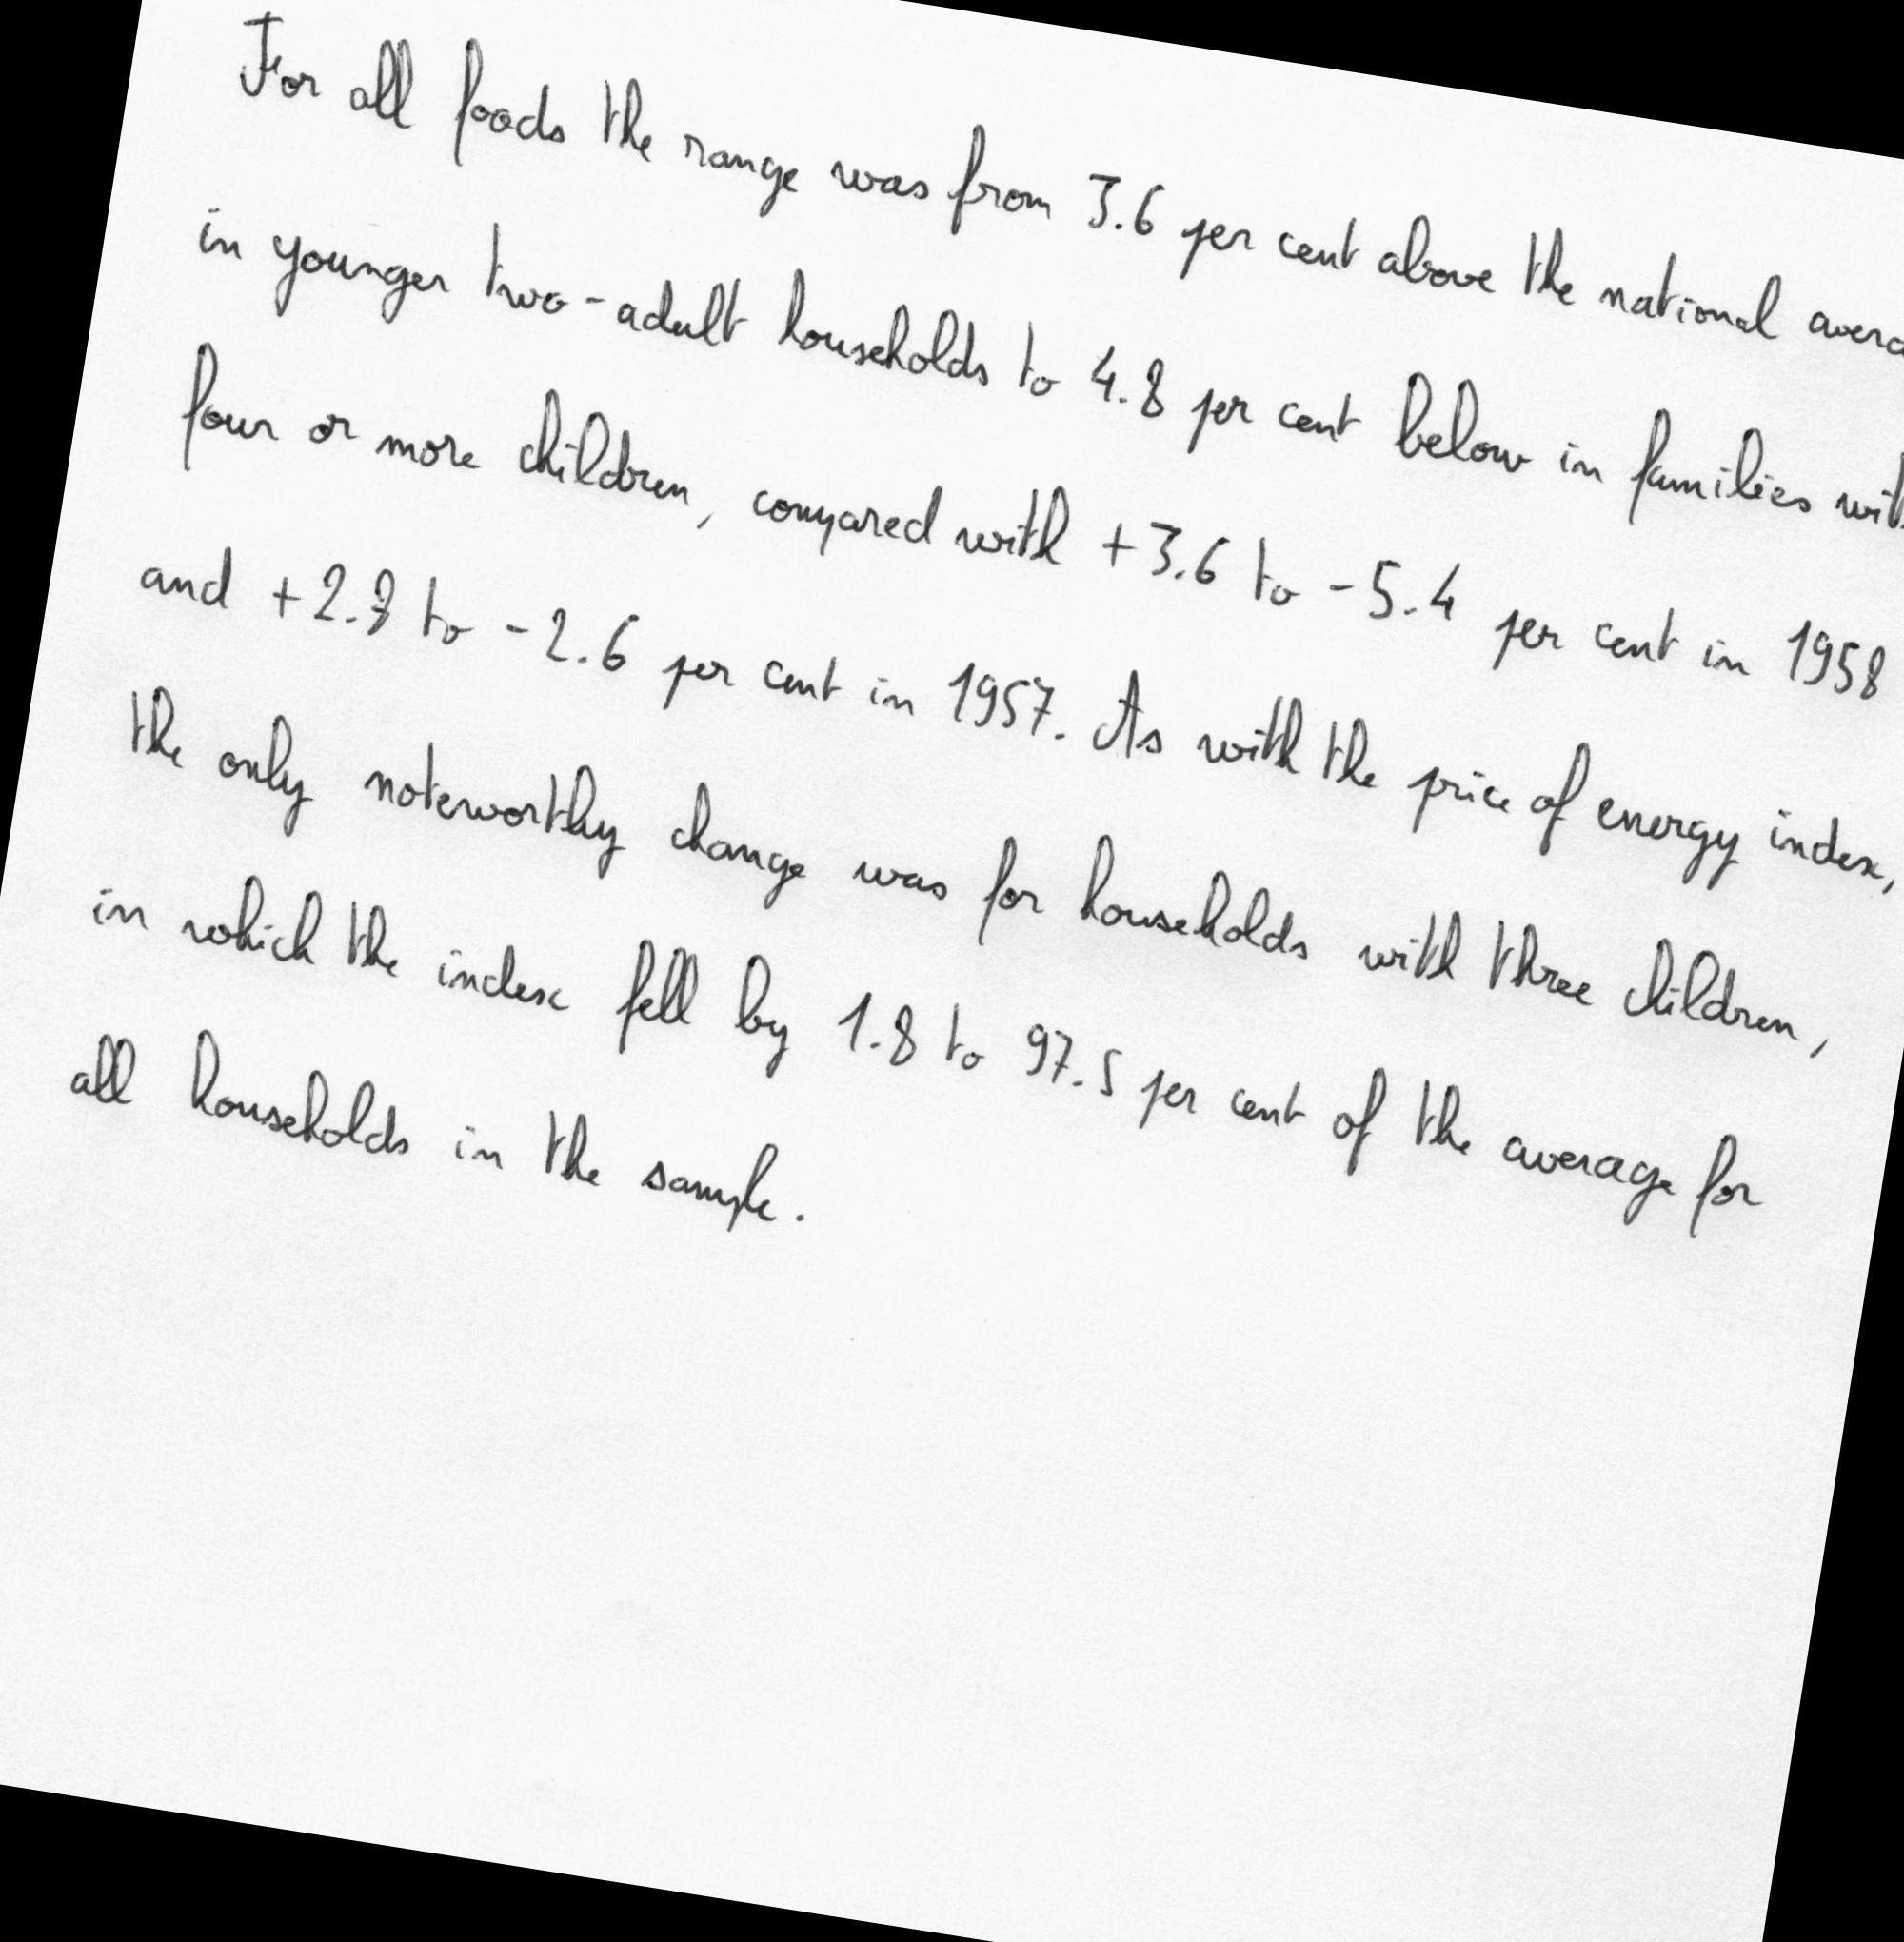 For all foods the range was from 3.6 per cent above the national avera
in younger two-adult households to 4.8 per cent below in families wit
four or more children, compared with +3.6 to -5.4 per cent in 1958
and +2.8 to -2.6 per cent in 1957. As with the price of energy index,
the only noteworthy change was for households with three children,
in which the index fell by 1.8 to 97.5 per cent of the average for
all households in the sample.